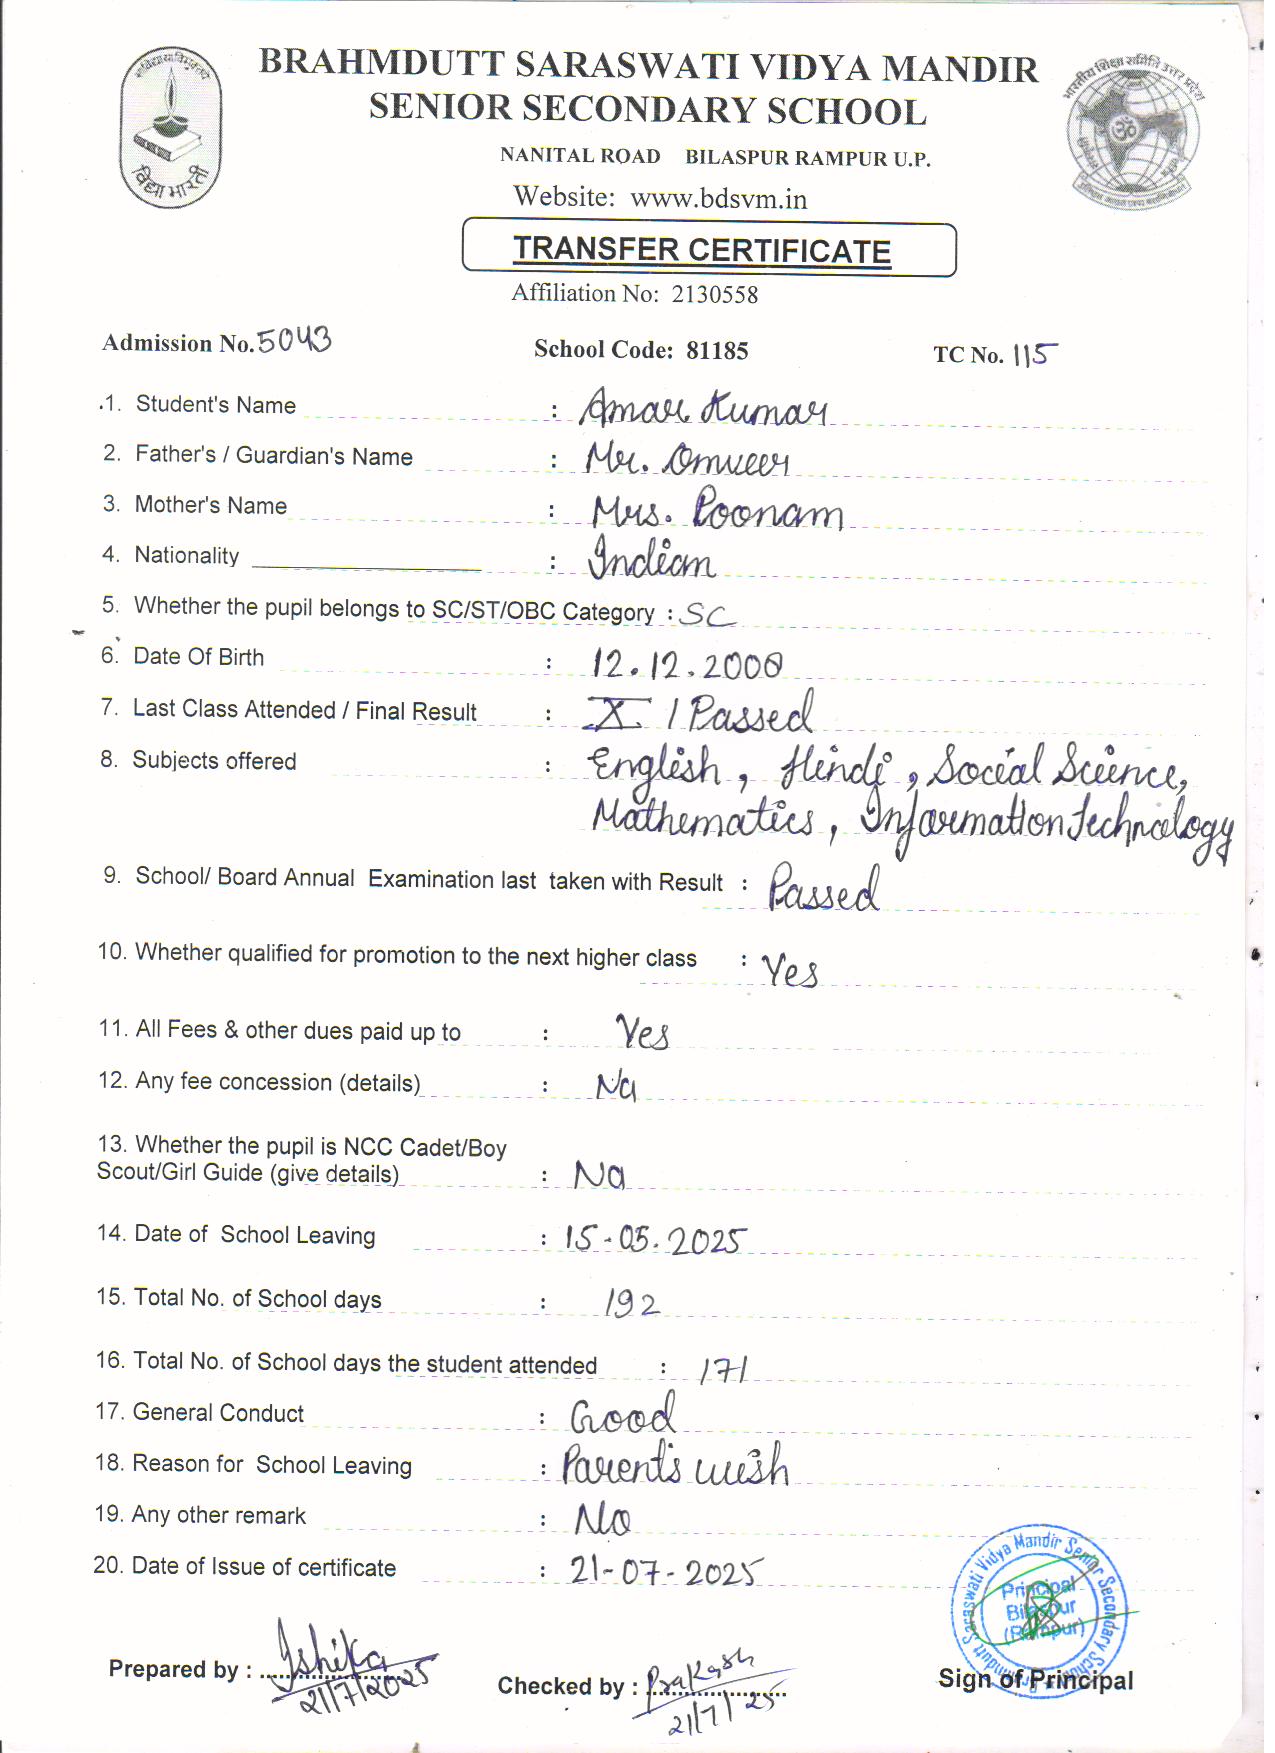 BRAHMDUTT SARASWATI VIDYA MANDIR
SENIOR SECONDARY SCHOOL
NANITAL ROAD BILASPUR RAMPUR U.P.
विद्या भारती
Website: www.bdsvm.in
TRANSFER CERTIFICATE
Affiliation No: 2130558
Admission No. 5043 School Code: 81185 TC No. 115
1. Student's Name : Amar Kumar
2. Father's / Guardian's Name : Mr. Omveer
3. Mother's Name : Mrs. Poonam
4. Nationality : Indian
5. Whether the pupil belongs to SC/ST/OBC Category : SC
6. Date Of Birth : 12.12.2008
7. Last Class Attended / Final Result : X / Passed
8. Subjects offered : English, Hindi, Social Science,
Mathematics, Information Technology
9. School/ Board Annual Examination last taken with Result : Passed
10. Whether qualified for promotion to the next higher class : Yes
11. All Fees & other dues paid up to : Yes
12. Any fee concession (details) : No
13. Whether the pupil is NCC Cadet/Boy
Scout/Girl Guide (give details) : No
14. Date of School Leaving : 15-05.2025
15. Total No. of School days : 192
16. Total No. of School days the student attended : 171
17. General Conduct : Good
18. Reason for School Leaving : Parent's wish
19. Any other remark : No
20. Date of Issue of certificate : 21-07-2025
Saraswati Vidya Mandir Senior Secondary School
Principal
Bilaspur
(Rampur)
Prepared by : Ishika
21/7/2025
Checked by : Prakash
21/7/25
Sign of Principal